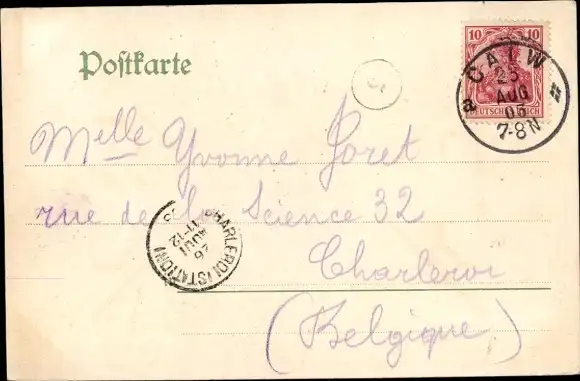 Postkarte
10 10
DEUTSCHES REICH
CALW
25
AUG
05
7-8N
a
Melle Yvonne Foret
rue de la Science 32
Charleroi
(Belgique)
CHARLEROI (STATION)
11-12
AOUT
26